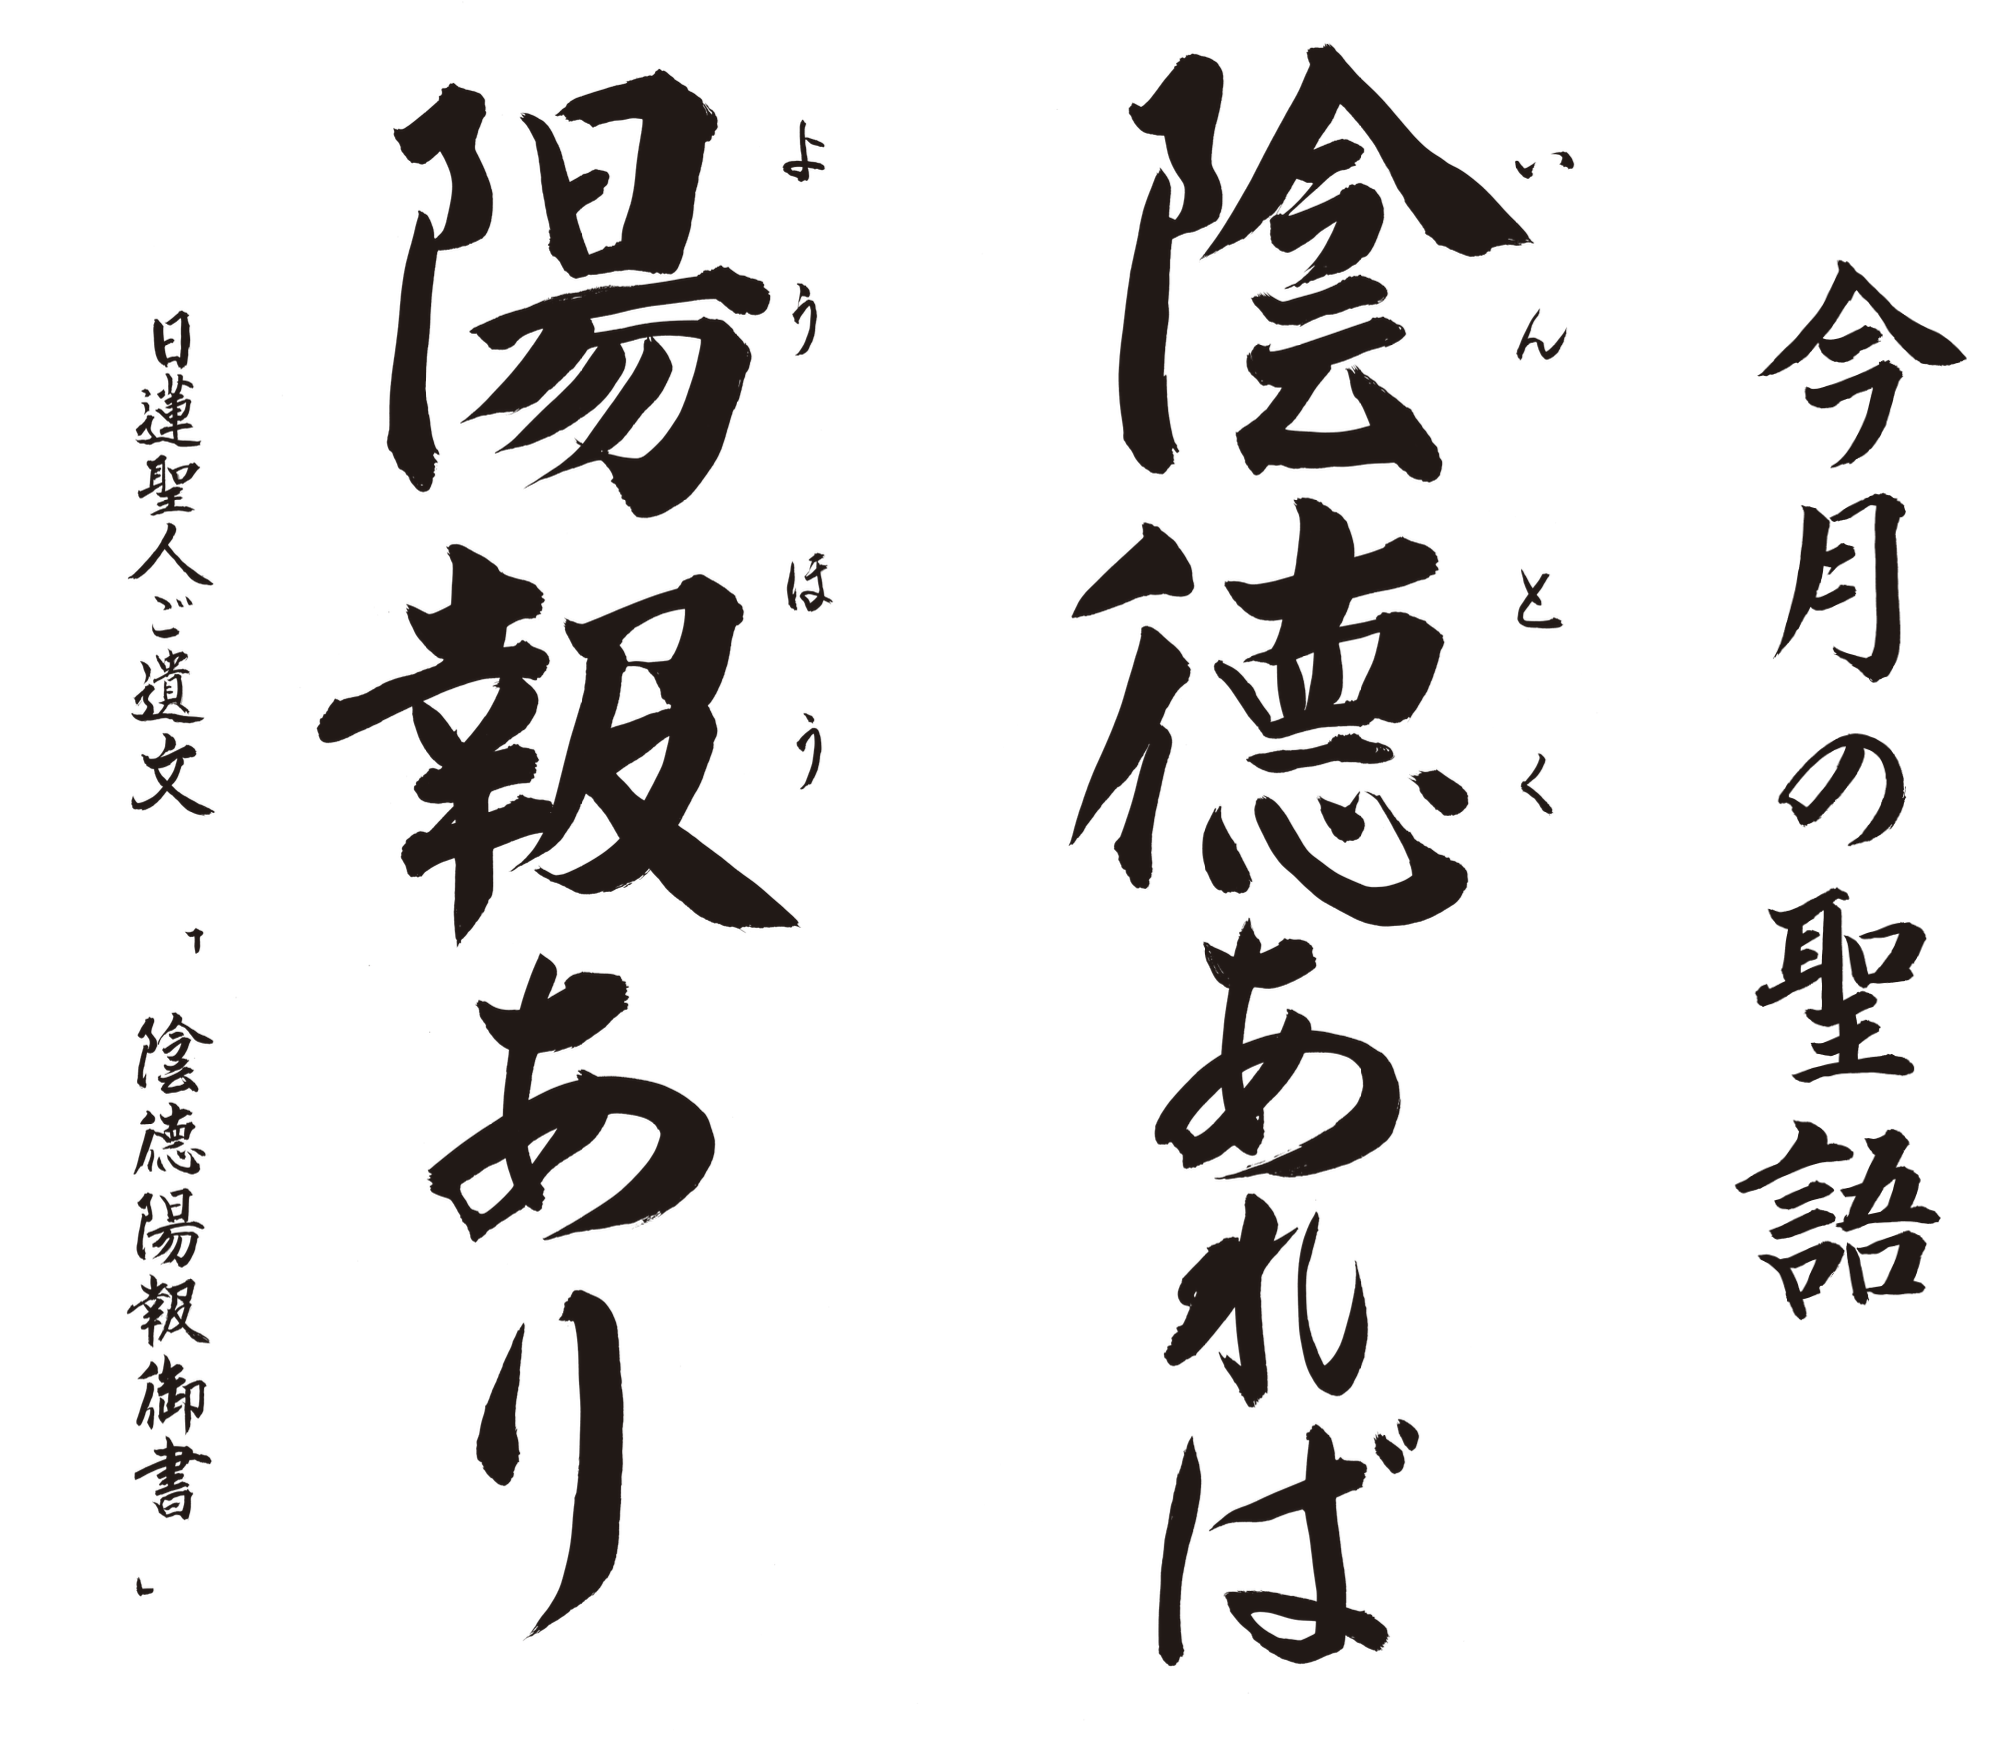 今月の聖語
いんとく
陰徳あれば
ようほう
陽報あり
日蓮聖人ご遺文 「陰徳陽報御書」